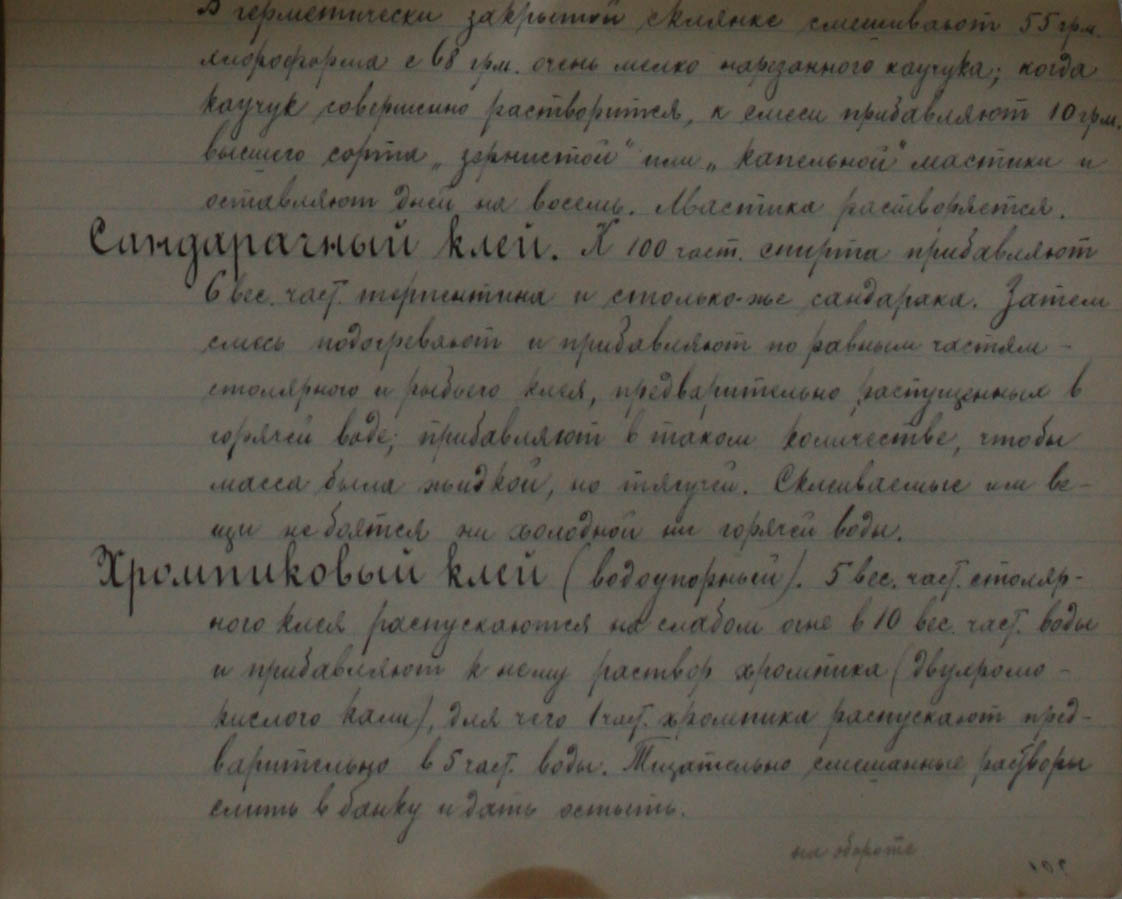 В герметически закрытой склянке смешивают 55 грм.
хлороформа с 68 грм. очень мелко нарезанного каучука; когда
каучук совершино растворится, к смеси прибавляют 10 грм.
высшего сорта „зернистой" или „капельной" мастики и
оставляют дней на восемь. Мастика растворяется.
Сандарачный клей. К 100 част. спирта прибавляют
6 вес. част. терпентина и столько-же сандарака. Затем
смесь подогревают и прибавляют по равным частям -
столярного и рыбьего клея, предварительно распущенных в
горячей воде; прибавляют в таком количестве, чтобы
масса была жидкой, но тягучей. Склеиваемые им ве-
щи не боятся ни холодной ни горячей воды.
Хромпиковый клей (водоупорный). 5 вес. част. столяр-
ного клея распускаются на слабом огне в 10 вес. част. воды
и прибавляют к нему раствор хромпика (двухромо-
кислого кали), для чего 1 част. хромпика распускают пред-
варительно в 5 част. воды. Тщательно смешанные растворы
слить в банку и дать остыть.
на обороте